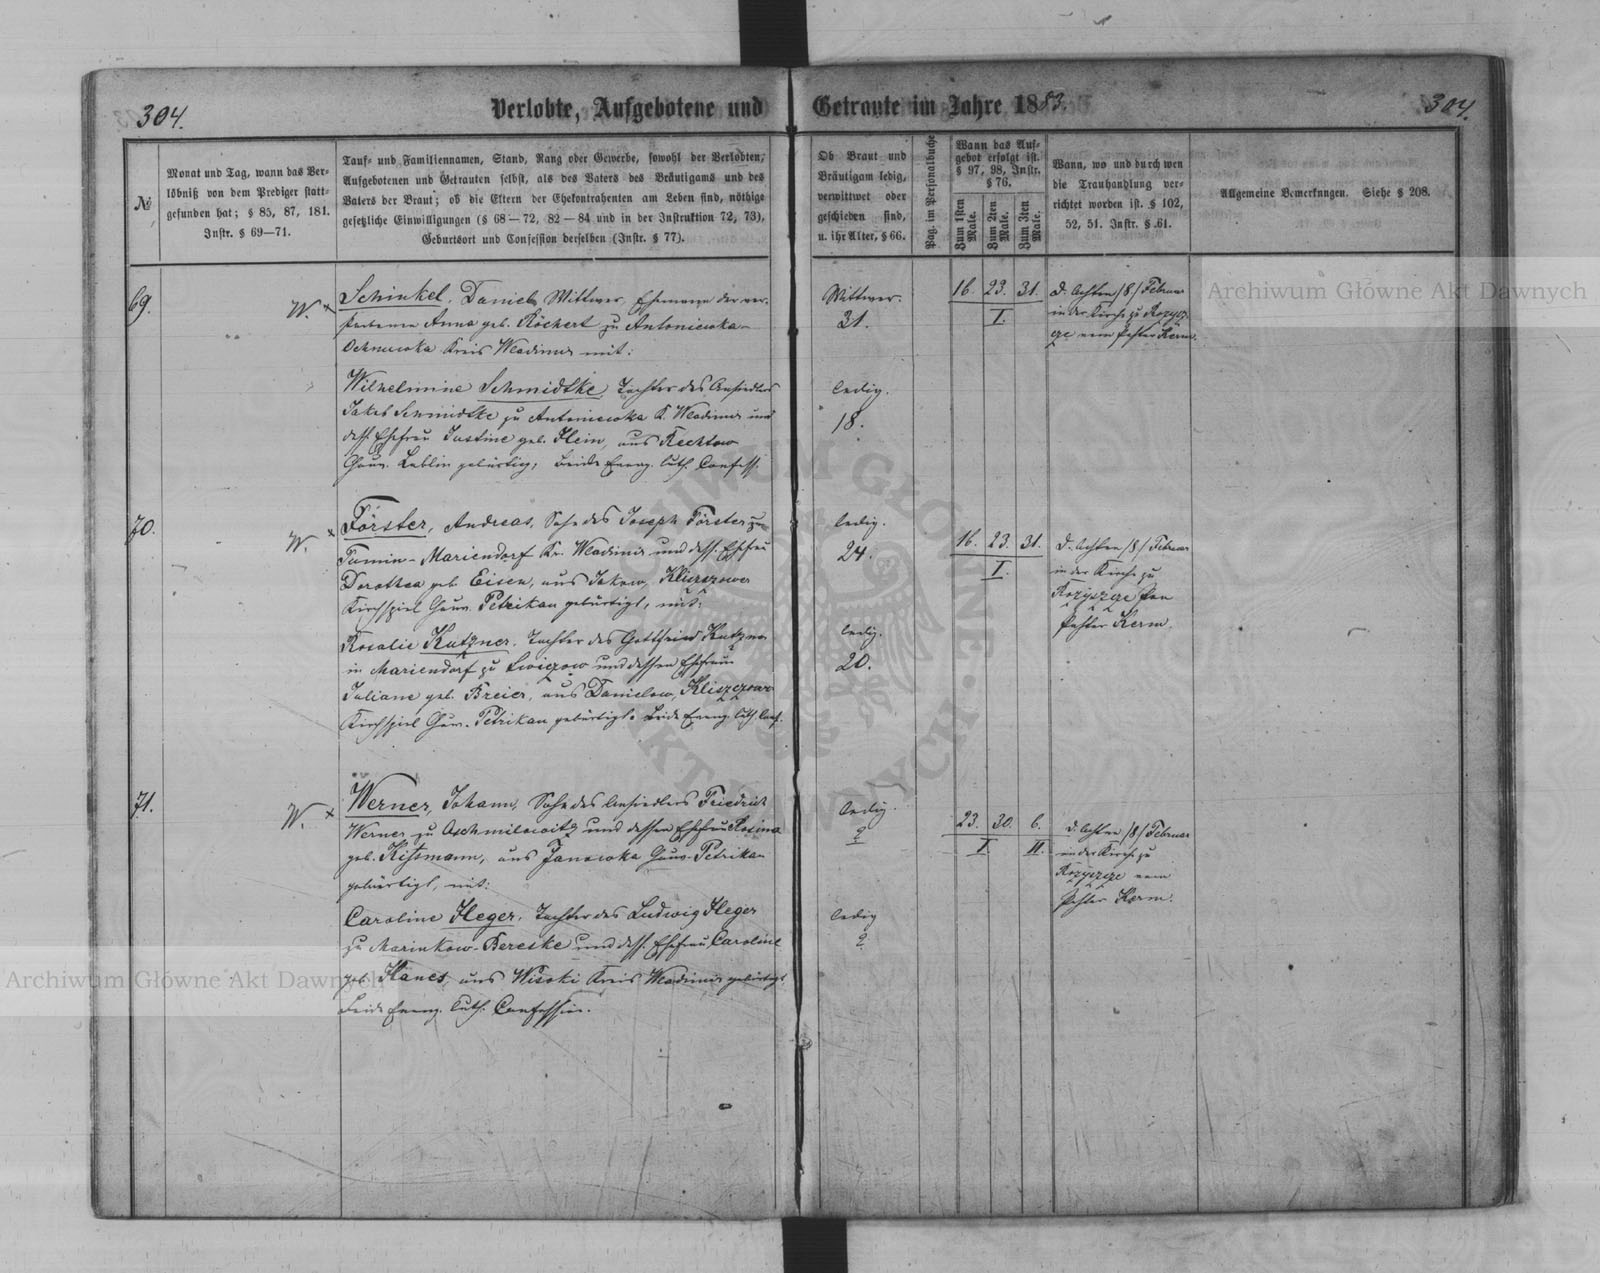 304.
Verlobte, Aufgebotene und Getraute im Jahre 1883.
304.
№
Monat und Tag, wann das Ver-
löbniß von dem Prediger statt-
gefunden hat; § 85, 87, 181.
Instr. § 69—71.
Tauf- und Familiennamen, Stand, Rang oder Gewerbe, sowohl der Verlobten,
Aufgebotenen und Getrauten selbst, als des Vaters des Bräutigams und des
Vaters der Braut; ob die Eltern der Ehekontrahenten am Leben sind, nöthige
gesetzliche Einwilligungen (§ 68—72, 82—84 und in der Instruktion 72, 73),
Geburtsort und Confession derselben (Instr. § 77).
Ob Braut und
Bräutigam ledig,
verwittwet oder
geschieden sind,
u. ihr Alter, § 66.
Pag. im Personalbuche
Wann das Auf-
gebot erfolgt ist.
§ 97, 98, Instr.
§ 76.
Zum 1sten
Male.
Zum 2ten
Male.
Zum 3ten
Male.
Wann, wo und durch wen
die Trauhandlung ver-
richtet worden ist. § 102,
52, 51. Instr. § 61.
Allgemeine Bemerkungen. Siehe § 208.
69.
W. x
Schinkel, Daniel, Wittwer, Ehemann der ver-
storbenen Anna geb. Röchert zu Antoniewka-
Kreis Wladimir mit:
Wilhelmine Schmidtke, Tochter des Ansiedlers
Jakob Schmidtke zu Antoniewka K. Wladimir und
dess. Ehefrau Justine geb. Hein, aus Rechtow
Gouv. Lublin gebürtig; beide Evang. luth. Confess.
Wittwer.
31.
ledig.
18.
16. 23. 31.
I.
d. achten /8/ Februar
in der Kirche zu Rozysz-
cze vom Pastor Kerm.
70.
W. x
Förster, Andreas, Sohn des Joseph Förster zu
Tumin-Mariendorf Kr. Wladimir und dess. Ehefrau
Dorothea geb. Eisen, aus Jakow, Kliszczower
Kirchspiel Gouv. Petrikau gebürtigt, mit:
Rosalie Kutzner, Tochter des Gottfried Kutzner
in Mariendorf zu und dessen Ehefrau
Juliane geb. Breier, aus Danielow, Kliszczower
Kirchspiel Gouv. Petrikau gebürtigt. Beide Evang. luth. Conf.
ledig.
24.
ledig.
20.
16. 23. 31.
I.
d. achten /8/ Februar
in der Kirche zu
Rozyszcze von
Pastor Kerm.
71.
W. x
Werner, Johann, Sohn des Ansiedlers Friedrich
Werner zu und dessen Ehefrau Rosina
geb. Kissmann, aus Janowka Gouv. Petrikau
gebürtigt, mit:
Caroline Heger, Tochter des Ludwig Heger
zu Marinkow-Bereske und dess. Ehefrau Caroline
geb. aus Wisoki Kreis Wladimir gebürtigt
beide Evang. luth. Confession.
ledig.
?
ledig
?
23. 30. 6.
I. II.
d. achten /8/ Februar
in der Kirche zu
Rozyszcze vom
Pastor Kerm.
Archiwum Główne Akt Dawnych
Archiwum Główne Akt Dawnych
ARCHIWUM GŁÓWNE AKT DAWNYCH